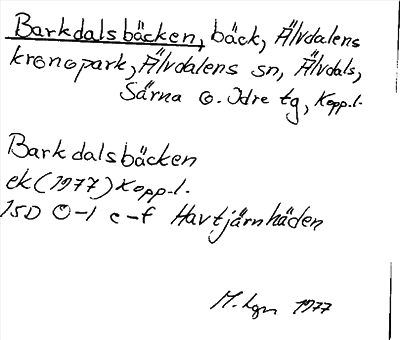 Barkdalsbäcken, bäck, Älvdalens
kronopark, Älvdalens sn, Älvdals,
Särna o. Idre tg, Kopp.l.
Barkdalsbäcken
ek (1977) Kopp.l.
15D 0-1 c-f Havtjärnhäden
M. Lgn 1977